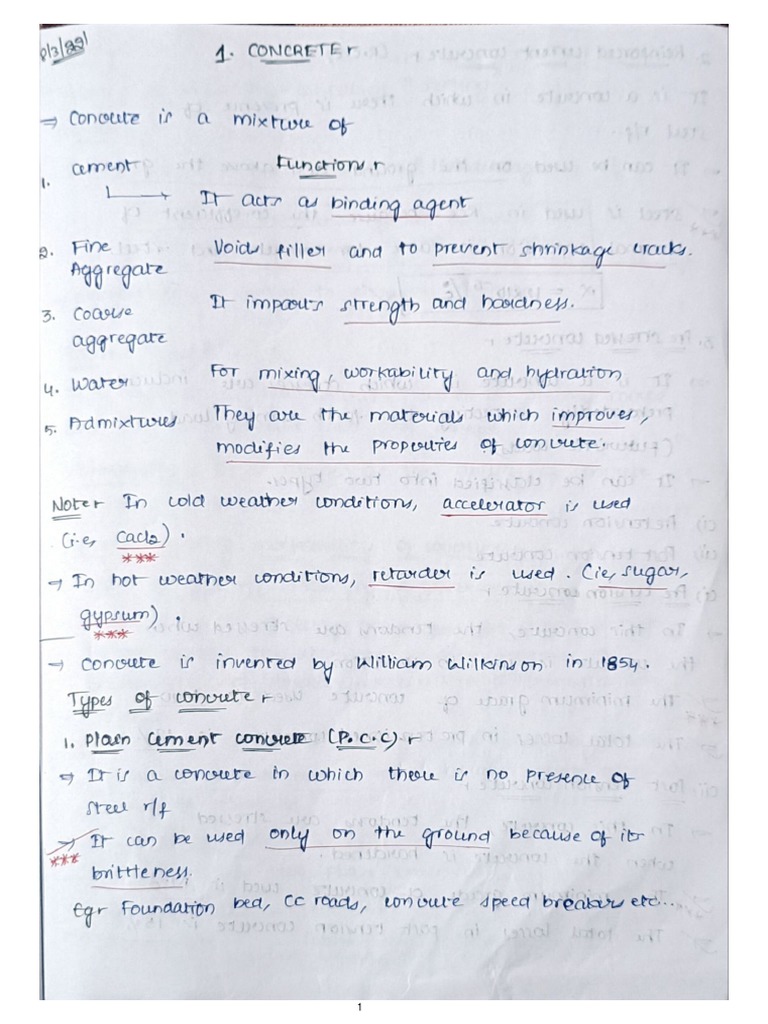 8/3/22
1. CONCRETE :-
⇒ Concrete is a mixture of
1. cement
Functions :-
It acts as binding agent
2. Fine Aggregate
Void filler and to prevent shrinkage cracks.
3. Coarse aggregate
It imparts strength and hardness.
4. Water
For mixing, workability and hydration
5. Admixtures
They are the materials which improves,
modifies the properties of concrete.
Note :- In cold weather conditions, accelerator is used
(i.e, Cacl2) .
***
→ In hot weather conditions, retarder is used. (ie, sugar,
gypsum) .
***
→ Concrete is invented by William Wilkinson in 1854.
Types of concrete :-
1. Plain cement concrete (P.C.C) :-
→ It is a concrete in which there is no presence of
steel r/f
→ It can be used only on the ground because of its
***
brittleness.
Eg :- Foundation bed, CC roads, concrete speed breakers etc...
1